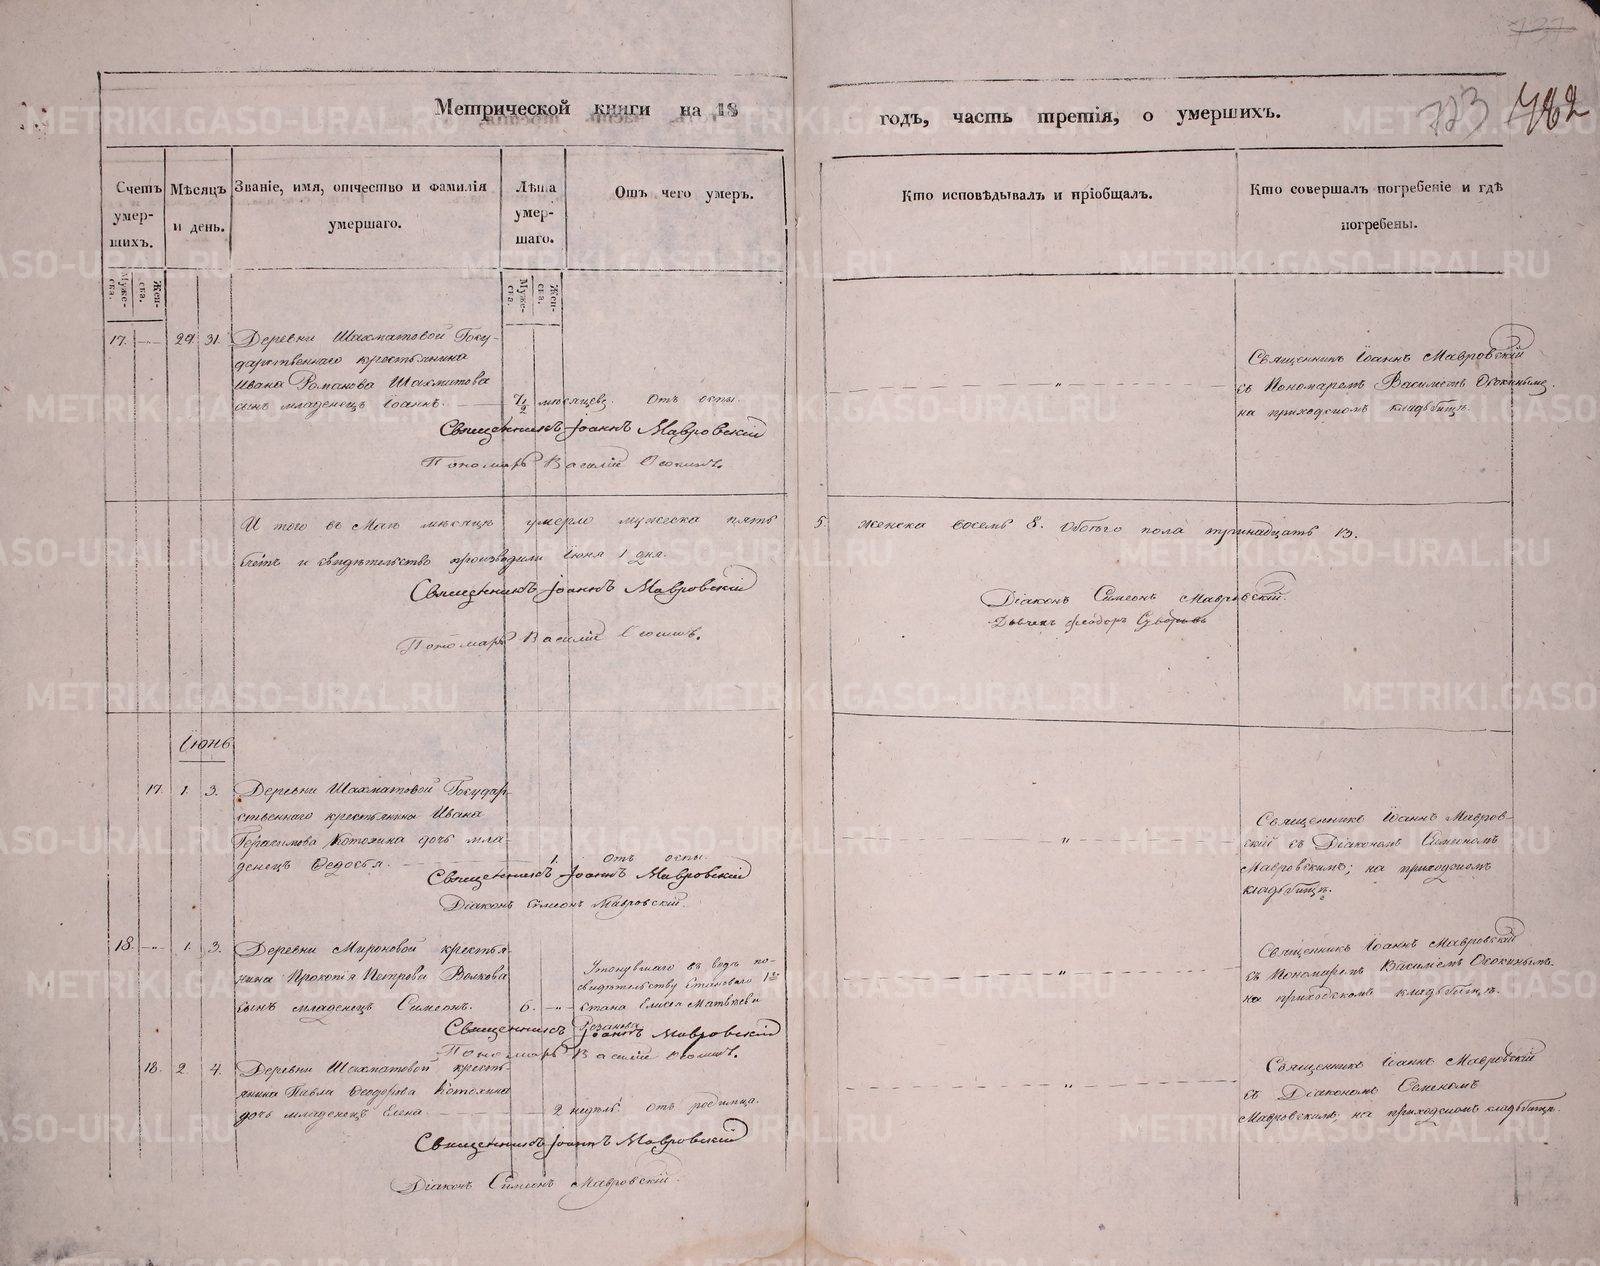 737
Метрической книги на 18
годъ, часть третія, о умершихъ.
723 782
Счетъ умер-шихъ.
Мѣсяцъ и день.
Званіе, имя, отчество и фамилія умершаго.
Лѣта умер-шаго.
Отъ чего умеръ.
Кто исповѣдывалъ и пріобщалъ.
Кто совершалъ погребеніе и гдѣ погребены.
Муже-ска.
Жен-ска.
Муже-ска.
Жен-ска.
17. 29 31. Деревни Шахматовой Госу-
дарственнаго крестьянина
Ивана Романова Шахматова
сынъ младенецъ Іоаннъ. 7 1/2 мѣсяцевъ. Отъ оспы.
Священникъ Іоаннъ Мавровскій
Пономарь Василій Осокинъ.
Священникъ Іоаннъ Мавровскій
съ Пономаремъ Василіемъ Осокинымъ.
на приходскомъ кладбищѣ.
И того въ Маѣ мѣсяцѣ умерло мужеска пять 5. женска восемь 8. Обоего пола тринадцать 13.
свидѣтельство производили Іюня 1 дня.
Священникъ Іоаннъ Мавровскій
Пономарь Василій Осокинъ.
Діаконъ Симеонъ Мавровскій.
Дьячекъ Феодоръ
Іюнь
17. 1. 3. Деревни Шахматовой Государ-
ственнаго крестьянина Ивана
Герасимова Котохина дочь мла-
денецъ Ѳедосья. 1. отъ оспы.
Священникъ Іоаннъ Мавровскій
Діаконъ Симеонъ Мавровскій.
Священникъ Іоаннъ Мавров-
скій съ Діакономъ Симеономъ
Мавровскимъ; на приходскомъ
кладбищѣ.
18. 1. 3. Деревни Мироновой крестья-
нина Прокопія Петрова Волкова
сынъ младенецъ Симеонъ. 6.
Утонувшаго въ водѣ по-
свидѣтельству Становаго 1го
стана Елисея Матвѣева
Розанова
Священникъ Іоаннъ Мавровскій
Пономарь Василій Осокинъ.
Священникъ Іоаннъ Мавровскій
съ Пономаремъ Василіемъ Осокинымъ.
на приходскомъ кладбищѣ.
18. 2. 4. Деревни Шахматовой кресть-
янина Павла Ѳеодорова Котохина
дочь младенецъ Елена. 2 недѣль отъ родимца.
Священникъ Іоаннъ Мавровскій
Діаконъ Симеонъ Мавровскій.
Священникъ Іоаннъ Мавровскій
съ Діакономъ Семеномъ
Мавровскимъ, на приходскомъ кладбищѣ.
METRIKI.GASO-URAL.RU